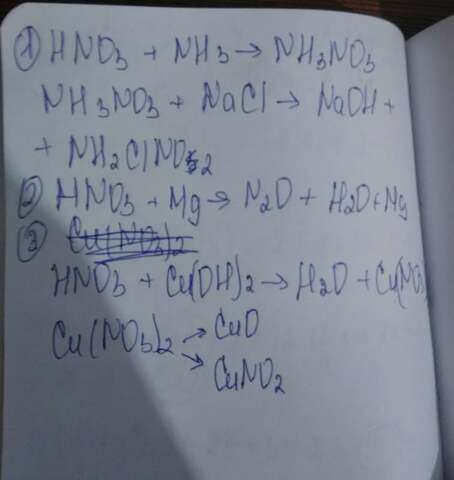 ① HNO3 + NH3 → NH3NO3
NH3NO3 + NaCl → NaOH +
+ NH2ClNO2
② HNO3 + Mg → N2O + H2O + Mg
③ Cu(NO3)2
HNO3 + Cu(OH)2 → H2O + Cu(NO3)
Cu(NO3)2 → CuO
↘ CuNO2